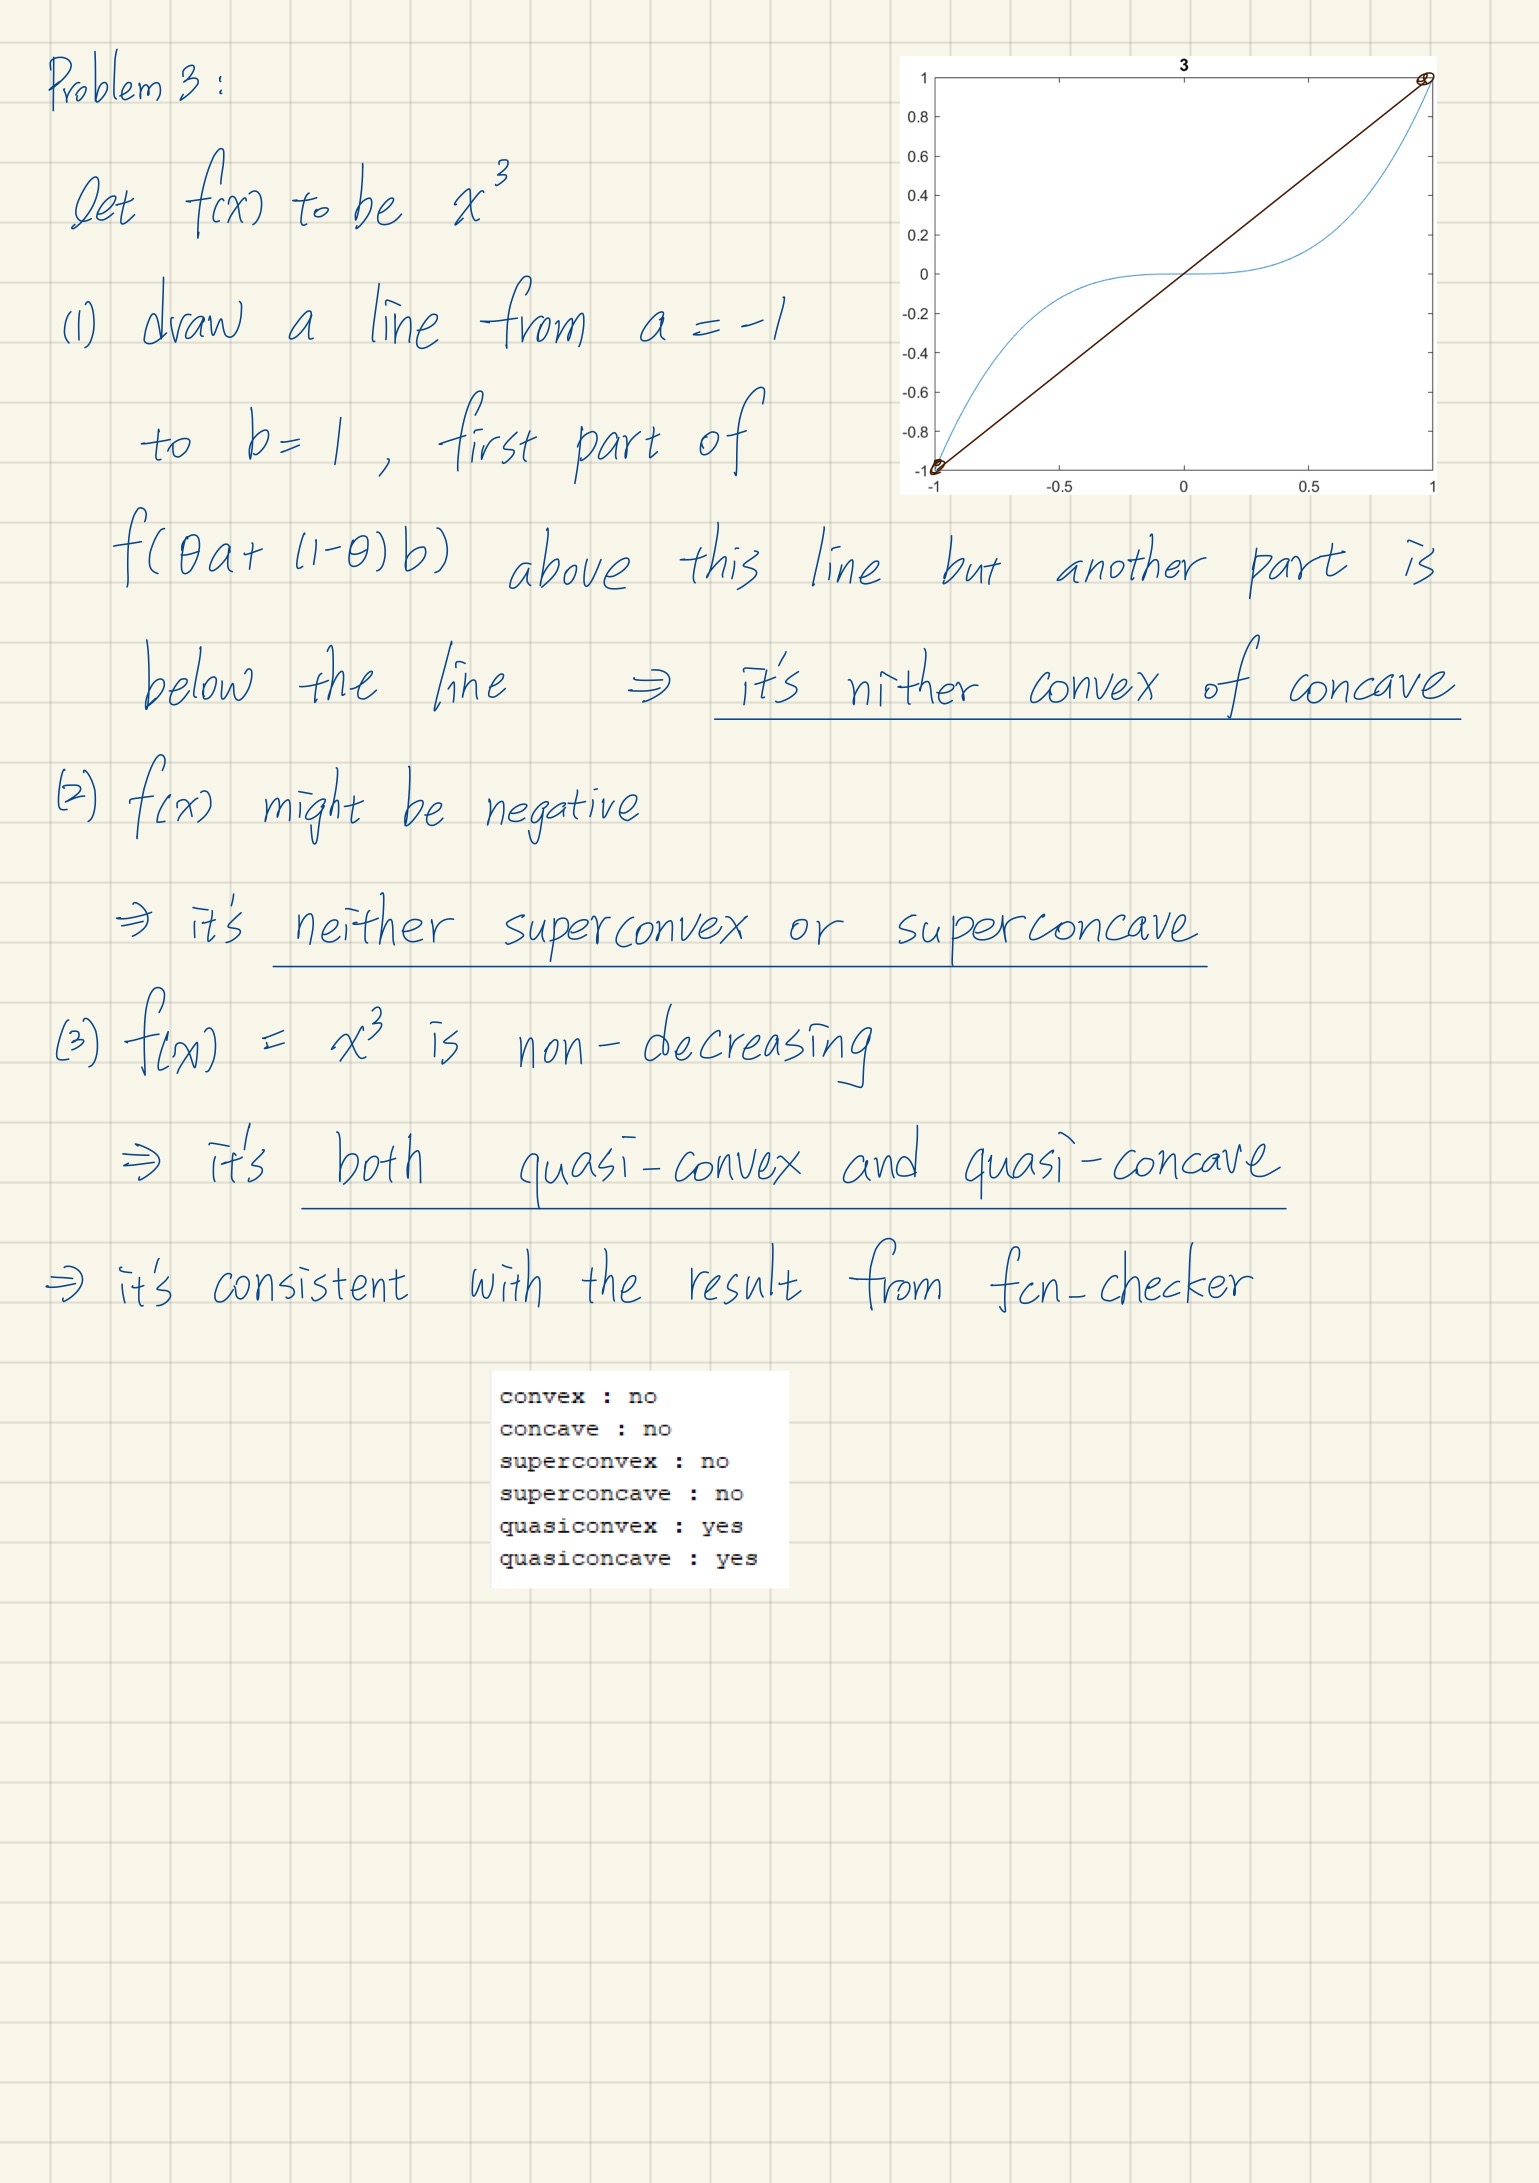 Problem 3 :
let f(x) to be x³
(1) draw a line from a = -1
to b = 1 , first part of
f(θa+ (1-θ)b) above this line but another part is
below the line ⇒ it's nither convex of concave
(2) f(x) might be negative
⇒ it's neither superconvex or superconcave
(3) f(x) = x³ is non-decreasing
⇒ it's both quasi-convex and quasi-concave
⇒ it's consistent with the result from fcn_checker
3
1
0.8
0.6
0.4
0.2
0
-0.2
-0.4
-0.6
-0.8
-1
-1 -0.5 0 0.5 1
convex : no
concave : no
superconvex : no
superconcave : no
quasiconvex : yes
quasiconcave : yes